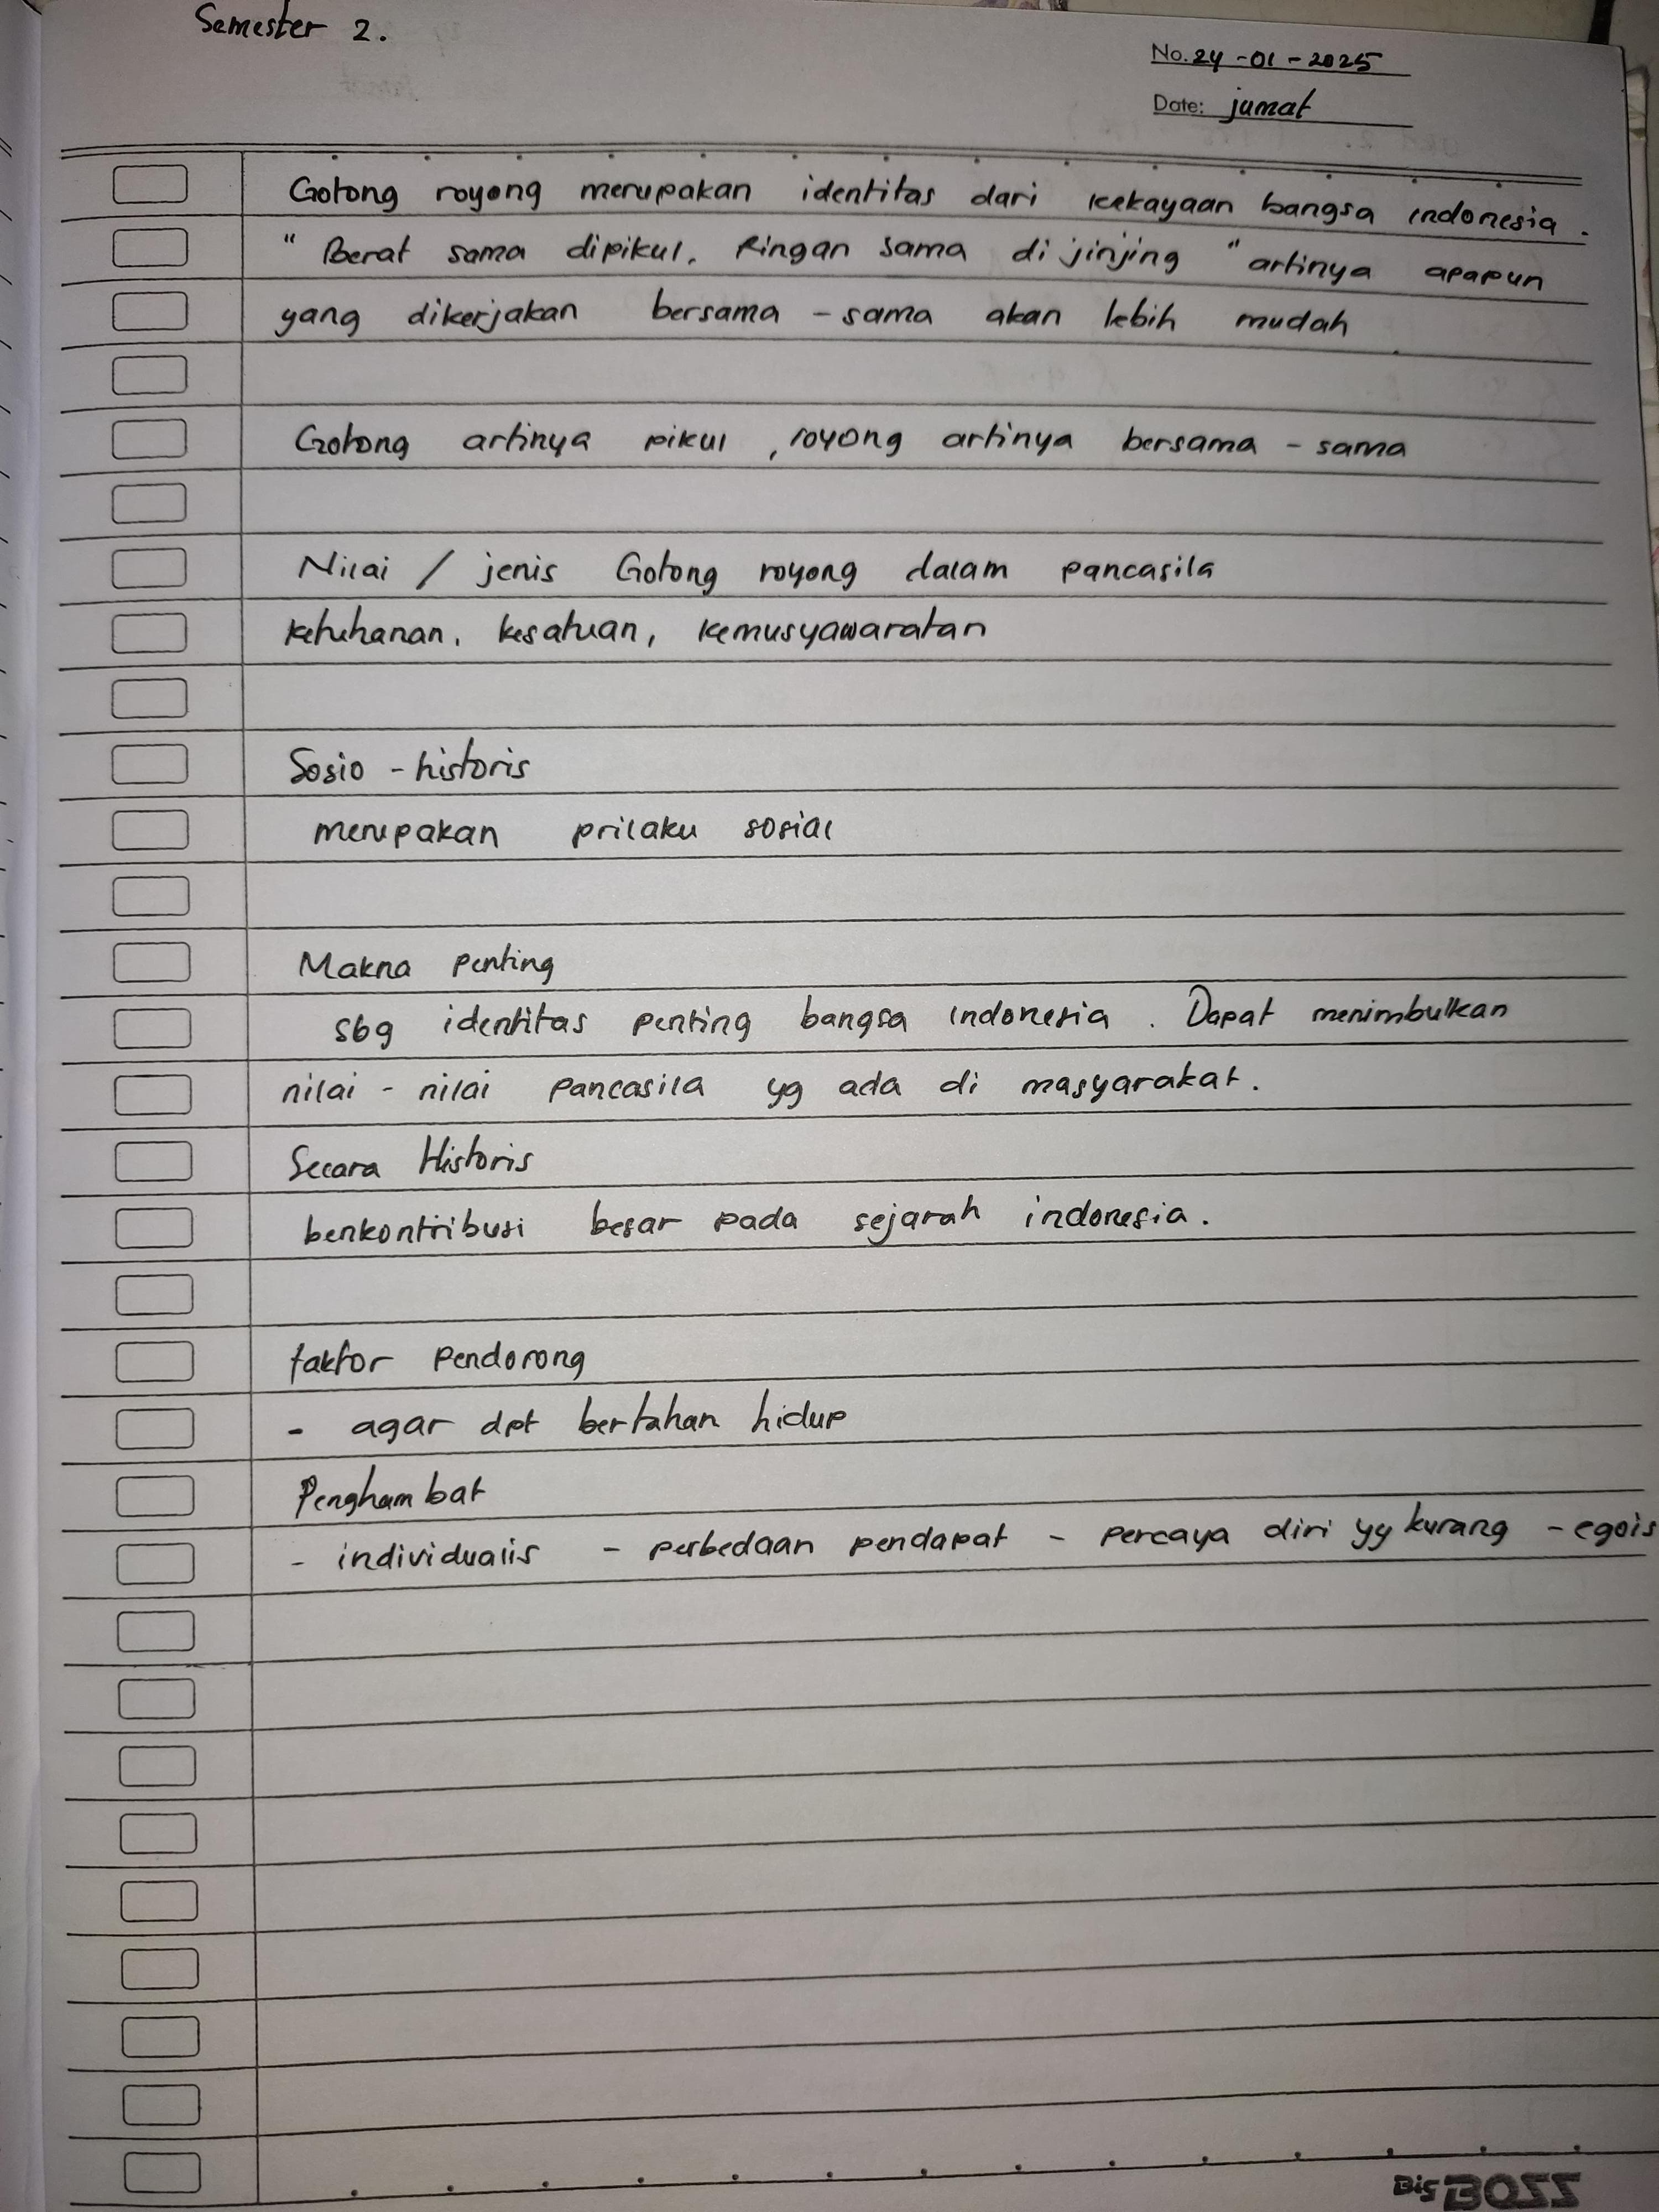 Semester 2.
No. 24-01-2025
Date: jumat
Gotong royong merupakan identitas dari kekayaan bangsa indonesia.
"Berat sama dipikul, Ringan sama di jinjing" artinya apapun
yang dikerjakan bersama-sama akan lebih mudah
Gotong artinya pikul, royong artinya bersama-sama
Nilai / jenis Gotong royong dalam pancasila
ketuhanan, kesatuan, kemusyawaratan
Sosio-historis
merupakan prilaku sosial
Makna penting
sbg identitas penting bangsa indonesia. Dapat menimbulkan
nilai-nilai pancasila yg ada di masyarakat.
Secara Historis
berkontribusi besar pada sejarah indonesia.
faktor Pendorong
- agar dpt bertahan hidup
Penghambat
- individualis - perbedaan pendapat - percaya diri yg kurang - egois
Big BOSS